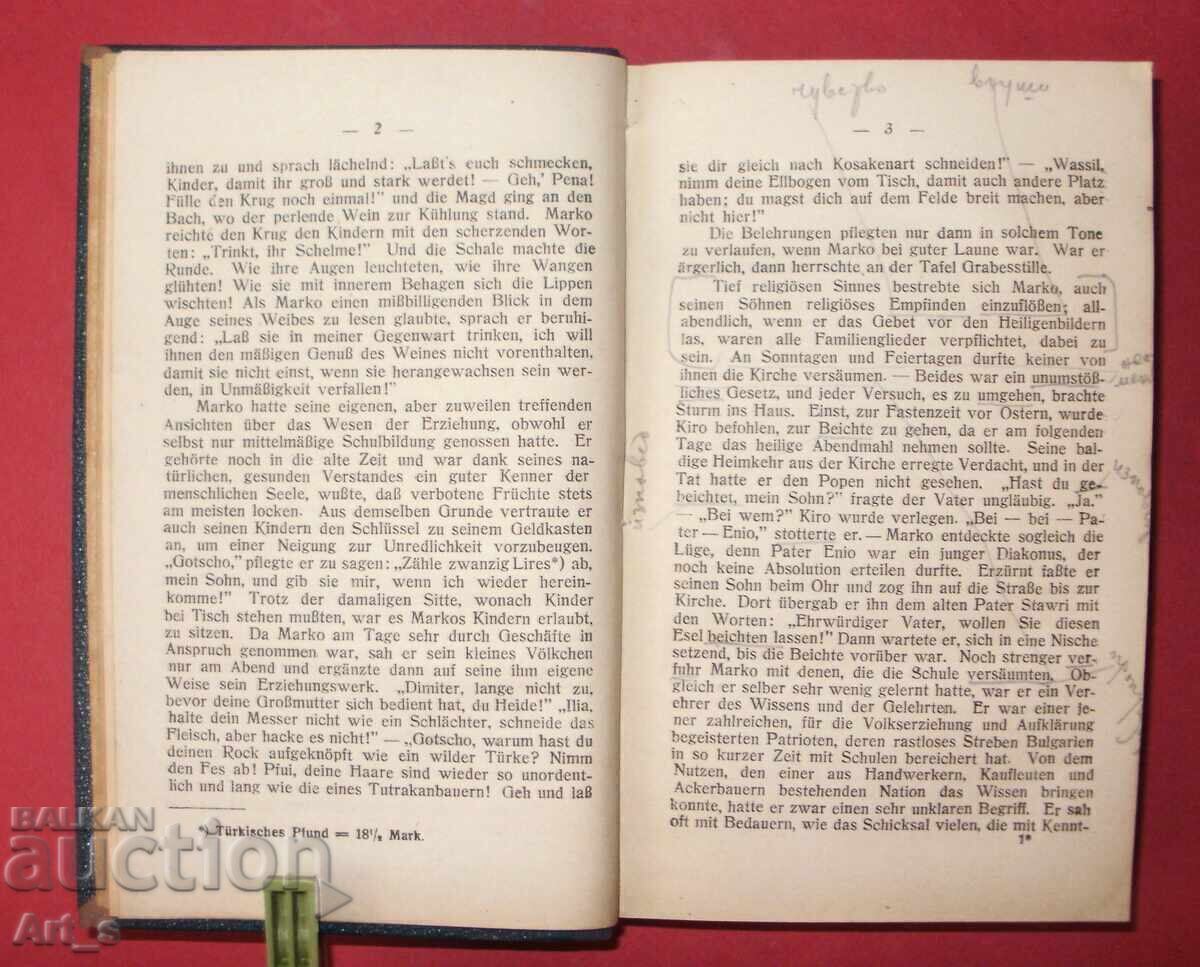 — 2 —
ihnen zu und sprach lächelnd: „Laßt's euch schmecken,
Kinder, damit ihr groß und stark werdet! — Geh,' Pena!
Fülle den Krug noch einmal!" und die Magd ging an den
Bach, wo der perlende Wein zur Kühlung stand. Marko
reichte den Krug den Kindern mit den scherzenden Wor-
ten: „Trinkt, ihr Schelme!" Und die Schale machte die
Runde. Wie ihre Augen leuchteten, wie ihre Wangen
glühten! Wie sie mit innerem Behagen sich die Lippen
wischten! Als Marko einen mißbilligenden Blick in dem
Auge seines Weibes zu lesen glaubte, sprach er beruhi-
gend: „Laß sie in meiner Gegenwart trinken, ich will
ihnen den mäßigen Genuß des Weines nicht vorenthalten,
damit sie nicht einst, wenn sie herangewachsen sein wer-
den, in Unmäßigkeit verfallen!"
Marko hatte seine eigenen, aber zuweilen treffenden
Ansichten über das Wesen der Erziehung, obwohl er
selbst nur mittelmäßige Schulbildung genossen hatte. Er
gehörte noch in die alte Zeit und war dank seines na-
türlichen, gesunden Verstandes ein guter Kenner der
menschlichen Seele, wußte, daß verbotene Früchte stets
am meisten locken. Aus demselben Grunde vertraute er
auch seinen Kindern den Schlüssel zu seinem Geldkasten
an, um einer Neigung zur Unredlichkeit vorzubeugen.
„Gotscho," pflegte er zu sagen: „Zähle zwanzig Lires*) ab,
mein Sohn, und gib sie mir, wenn ich wieder herein-
komme!" Trotz der damaligen Sitte, wonach Kinder
bei Tisch stehen mußten, war es Markos Kindern erlaubt,
zu sitzen. Da Marko am Tage sehr durch Geschäfte in
Anspruch genommen war, sah er sein kleines Völkchen
nur am Abend und ergänzte dann auf seine ihm eigene
Weise sein Erziehungswerk. „Dimiter, lange nicht zu,
bevor deine Großmutter sich bedient hat, du Heide!" „Ilia,
halte dein Messer nicht wie ein Schlächter, schneide das
Fleisch, aber hacke es nicht!" — „Gotscho, warum hast du
deinen Rock aufgeknöpft wie ein wilder Türke? Nimm
den Fes ab! Pfui, deine Haare sind wieder so unordent-
lich und lang wie die eines Tutrakanbauern! Geh und laß
*) Türkisches Pfund = 18¹/₂ Mark.
чувство внуши
— 3 —
sie dir gleich nach Kosakenart schneiden!" — „Wassil,
nimm deine Ellbogen vom Tisch, damit auch andere Platz
haben; du magst dich auf dem Felde breit machen, aber
nicht hier!"
Die Belehrungen pflegten nur dann in solchem Tone
zu verlaufen, wenn Marko bei guter Laune war. War er
ärgerlich, dann herrschte an der Tafel Grabesstille.
Tief religiösen Sinnes bestrebte sich Marko, auch
seinen Söhnen religiöses Empfinden einzuflößen; all-
abendlich, wenn er das Gebet vor den Heiligenbildern
las, waren alle Familienglieder verpflichtet, dabei zu
sein. An Sonntagen und Feiertagen durfte keiner von
ihnen die Kirche versäumen. — Beides war ein unumstöß-
liches Gesetz, und jeder Versuch, es zu umgehen, brachte
Sturm ins Haus. Einst, zur Fastenzeit vor Ostern, wurde
Kiro befohlen, zur Beichte zu gehen, da er am folgenden
Tage das heilige Abendmahl nehmen sollte. Seine bal-
dige Heimkehr aus der Kirche erregte Verdacht, und in der
Tat hatte er den Popen nicht gesehen. „Hast du ge-
beichtet, mein Sohn?" fragte der Vater ungläubig. „Ja."
— „Bei wem?" Kiro wurde verlegen. „Bei — bei — Pa-
ter — Enio," stotterte er. — Marko entdeckte sogleich die
Lüge, denn Pater Enio war ein junger Diakonus, der
noch keine Absolution erteilen durfte. Erzürnt faßte er
seinen Sohn beim Ohr und zog ihn auf die Straße bis zur
Kirche. Dort übergab er ihn dem alten Pater Stawri mit
den Worten: „Ehrwürdiger Vater, wollen Sie diesen
Esel beichten lassen!" Dann wartete er, sich in eine Nische
setzend, bis die Beichte vorüber war. Noch strenger ver-
fuhr Marko mit denen, die die Schule versäumten. Ob-
gleich er selber sehr wenig gelernt hatte, war er ein Ver-
ehrer des Wissens und der Gelehrten. Er war einer je-
ner zahlreichen, für die Volkserziehung und Aufklärung
begeisterten Patrioten, deren rastloses Streben Bulgarien
in so kurzer Zeit mit Schulen bereichert hat. Von dem
Nutzen, den einer aus Handwerkern, Kaufleuten und
Ackerbauern bestehenden Nation das Wissen bringen
konnte, hatte er zwar einen sehr unklaren Begriff. Er sah
oft mit Bedauern, wie das Schicksal vielen, die mit Kennt-
1*
изповед
BALKAN
auction
Art_s